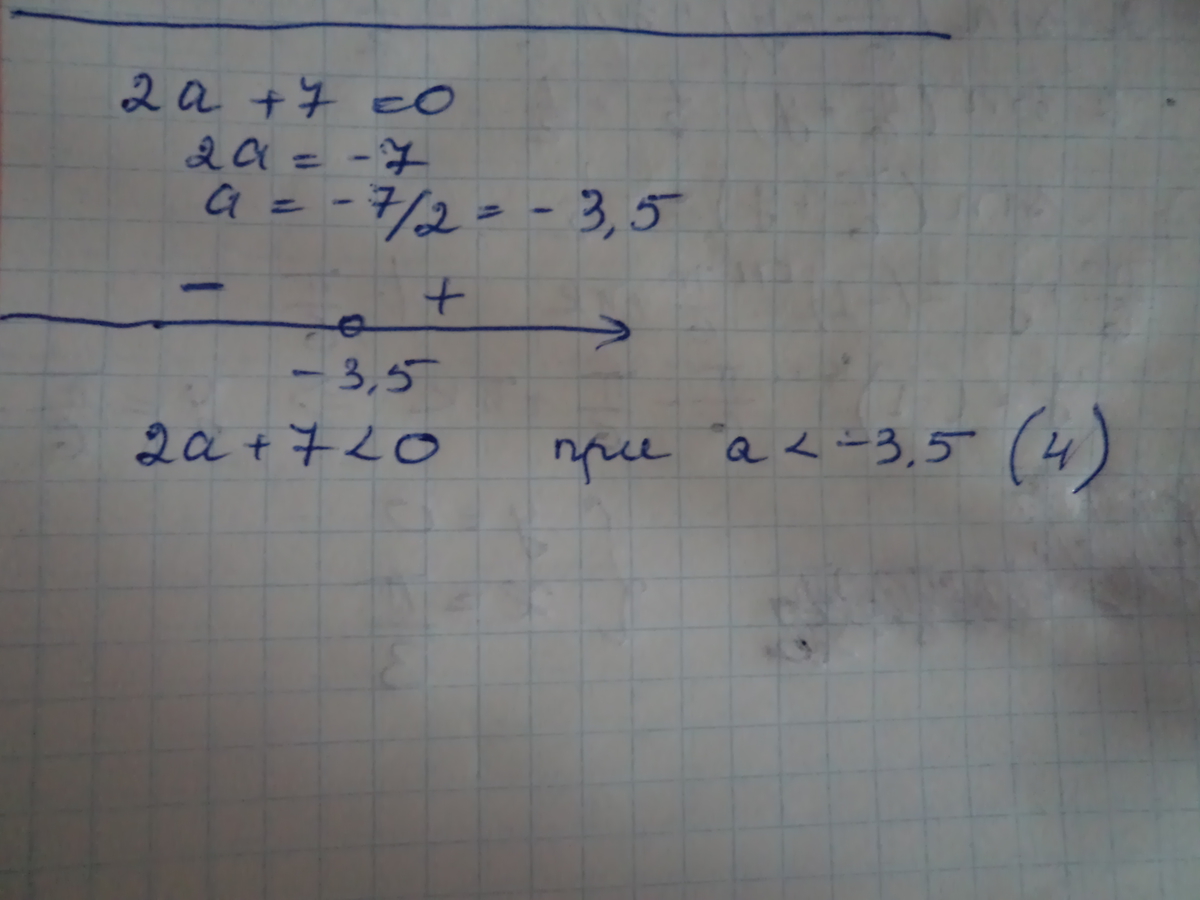 2a + 7 = 0
2a = -7
a = -7/2 = -3,5
- +
-3,5
2a + 7 < 0 при a < -3.5 (4)